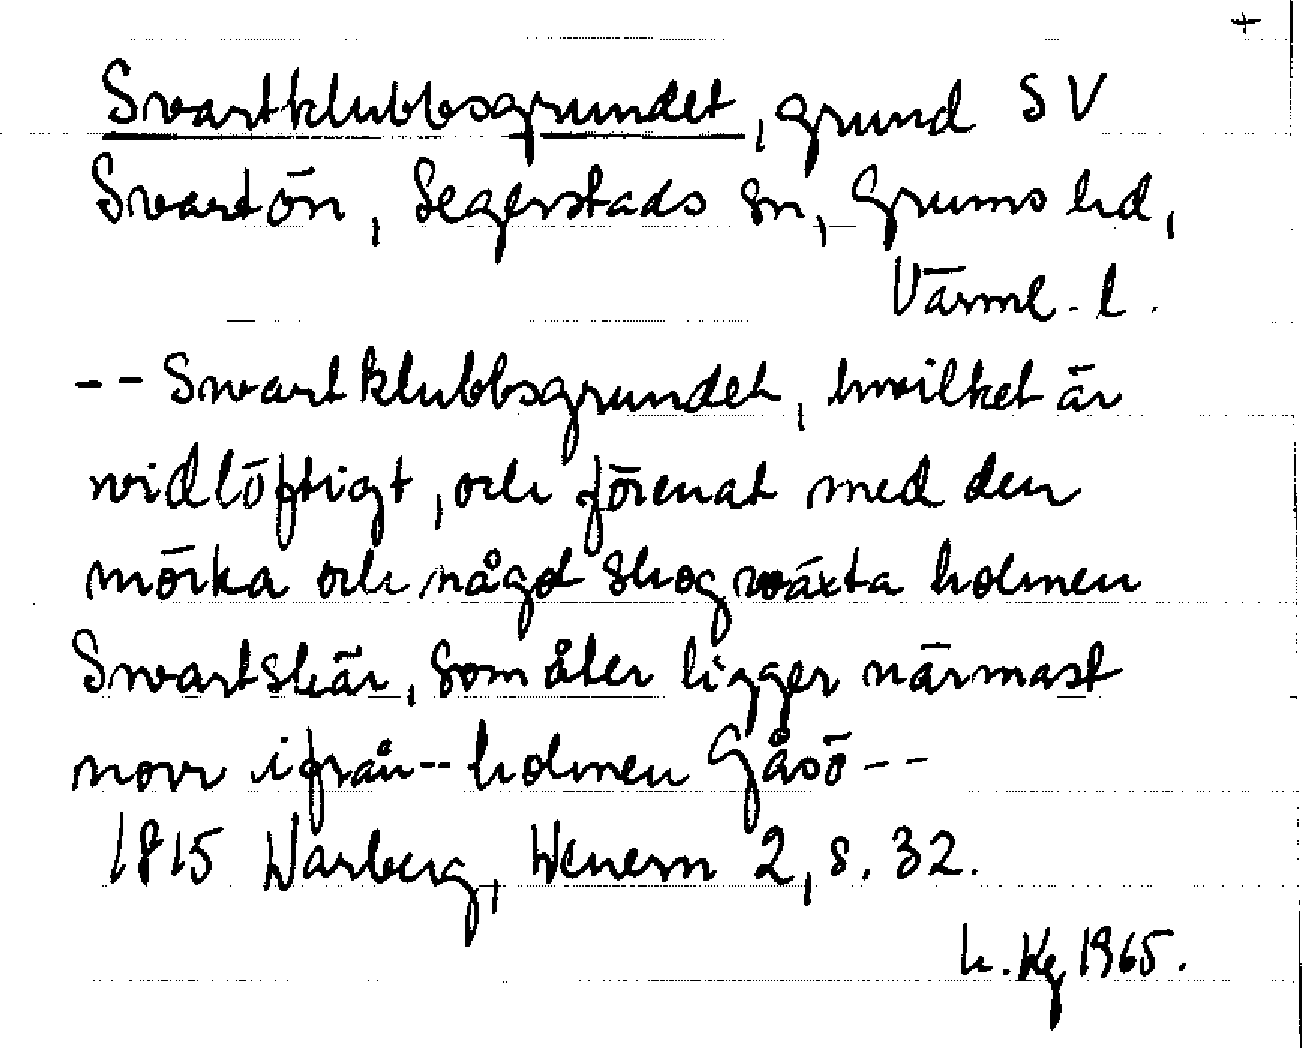 +
Svartklubbsgrundet, grund SV
Svartön, Segerstads sn, Grums hd,
Värml. l.
-- Swartklubbsgrundet, hwilket är
widlöftigt, och förenat med den
mörka och något skogwäxta holmen
Swartskär, som åter ligger närmast
norr ifrån -- holmen Gåsö --
1815 Warberg, Wenern 2, s. 32.
h. Kg 1965.